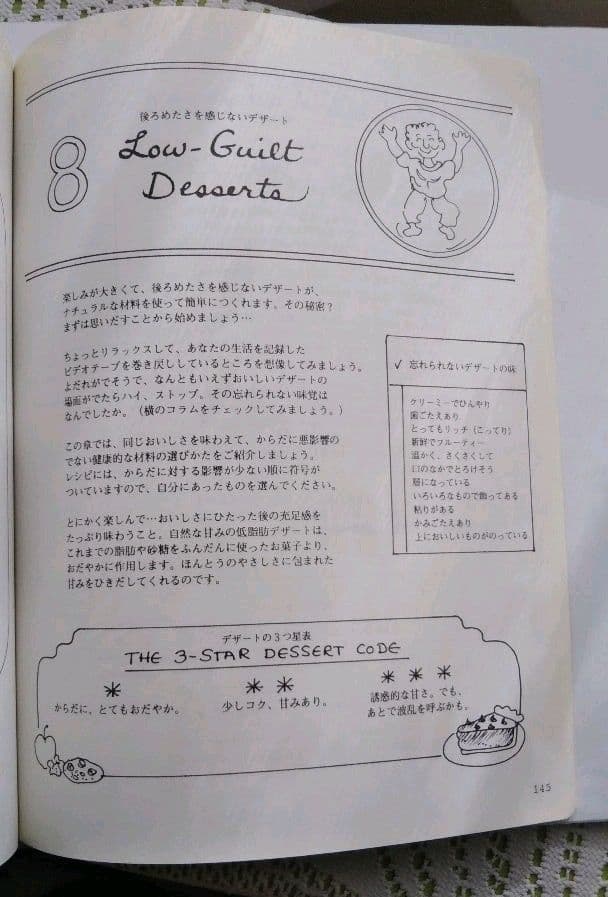 後ろめたさを感じないデザート
8
Low-Guilt
Desserts
楽しみが大きくて、後ろめたさを感じないデザートが、
ナチュラルな材料を使って簡単につくれます。その秘密?
まずは思いだすことから始めましょう…
ちょっとリラックスして、あなたの生活を記録した
ビデオテープを巻き戻ししているところを想像してみましょう。
よだれがでそうで、なんともいえずおいしいデザートの
場面がでたらハイ、ストップ。その忘れられない味覚は
なんでしたか。(横のコラムをチェックしてみましょう。)
この章では、同じおいしさを味わえて、からだに悪影響の
でない健康的な材料の選びかたをご紹介しましょう。
レシピには、からだに対する影響が少ない順に符号が
ついていますので、自分にあったものを選んでください。
とにかく楽しんで…おいしさにひたった後の充足感を
たっぷり味わうこと。自然な甘みの低脂肪デザートは、
これまでの脂肪や砂糖をふんだんに使ったお菓子より、
おだやかに作用します。ほんとうのやさしさに包まれた
甘みをひきだしてくれるのです。
✓ 忘れられないデザートの味
クリーミーでひんやり
歯ごたえあり
とってもリッチ(こってり)
新鮮でフルーティー
温かく、さくさくして
口のなかでとろけそう
層になっている
いろいろなもので飾ってある
粘りがある
かみごたえあり
上においしいものがのっている
デザートの3つ星表
THE 3-STAR DESSERT CODE
*
からだに、とてもおだやか。
* *
少しコク、甘みあり。
* * *
誘惑的な甘さ。でも、
あとで波乱を呼ぶかも。
145